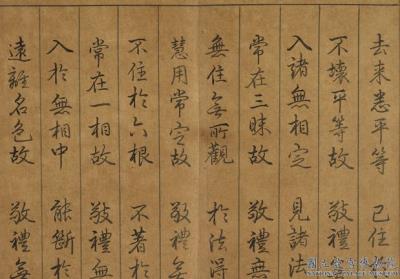 去来悉平等 已住
不壞平等故 敬禮
入諸無相定 見諸法
常在三昧故 敬禮無
無住無所觀 於法得
慧用常定故 敬禮無
不住於六根 不著於
常在一相故 敬禮無
入於無相中 能斷於
遠離名色故 敬禮無